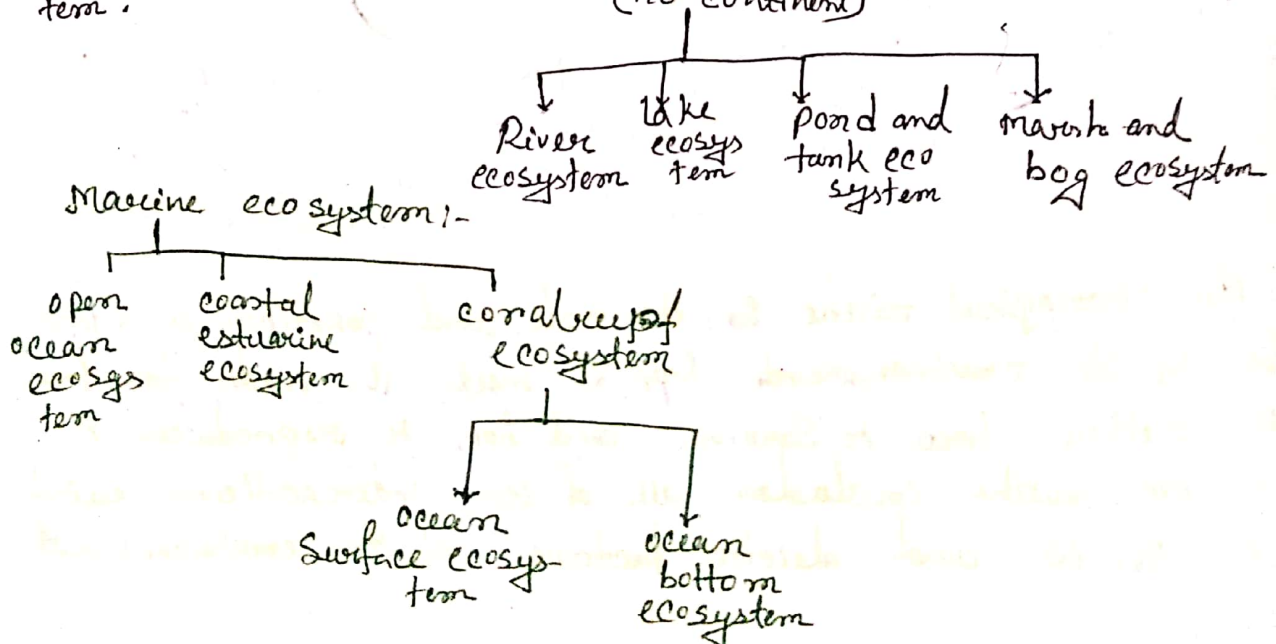 tem.
River
ecosystem
Lake
ecosys
tem
pond and
tank eco
system
marsh and
bog ecosystem
Marine ecosystem:-
open
ocean
ecosys
tem
coastal
estuarine
ecosystem
coralreef
ecosystem
ocean
Surface ecosys-
tem
ocean
bottom
ecosystem